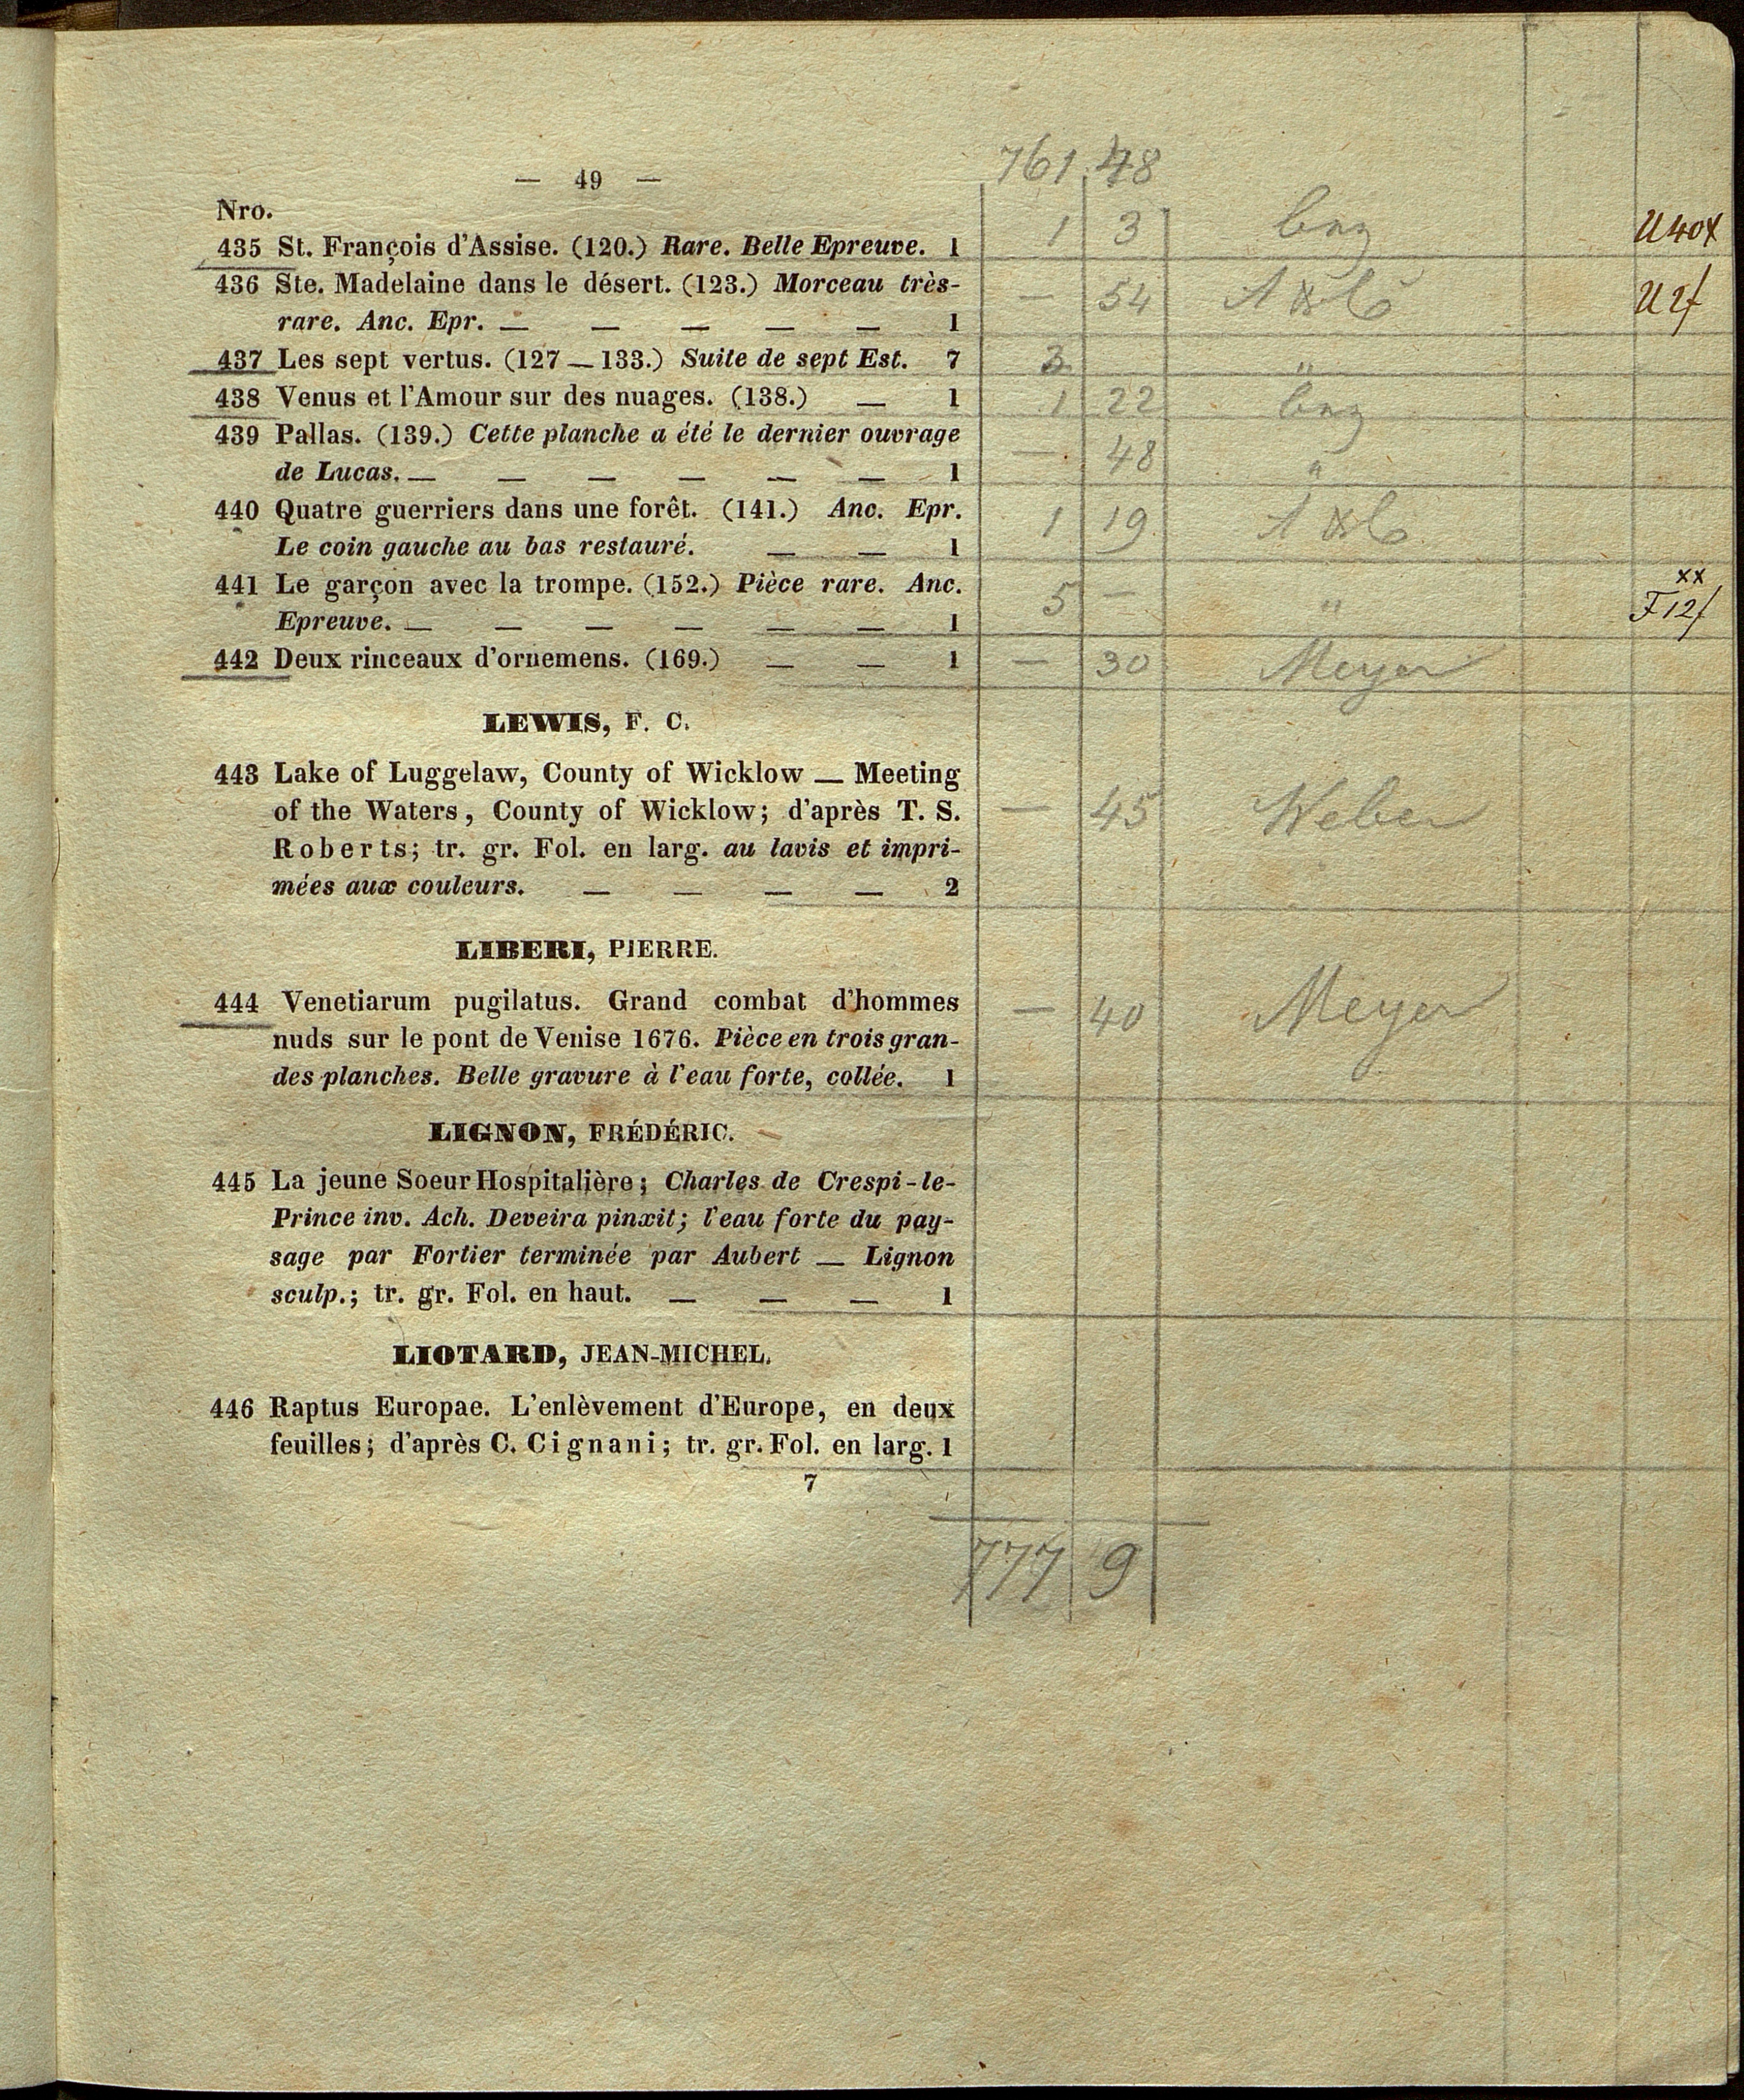 761 48
— 49 —
Nro.
435 St. François d'Assise. (120.) Rare. Belle Epreuve. 1 1 3 U 40x
436 Ste. Madelaine dans le désert. (123.) Morceau très-
rare. Anc. Epr. — — — — — 1 — 54 U 2f
437 Les sept vertus. (127 — 133.) Suite de sept Est. 7 3 "
438 Venus et l'Amour sur des nuages. (138.) — 1 1 22
439 Pallas. (139.) Cette planche a été le dernier ouvrage
de Lucas. — — — — — — 1 — 48 "
440 Quatre guerriers dans une forêt. (141.) Anc. Epr.
Le coin gauche au bas restauré. — — 1 1 19
441 Le garçon avec la trompe. (152.) Pièce rare. Anc. xx
Epreuve. — — — — — — 1 5 — " F 12f
442 Deux rinceaux d'ornemens. (169.) — — 1 — 30 Meyer
LEWIS, F. C.
443 Lake of Luggelaw, County of Wicklow — Meeting
of the Waters, County of Wicklow; d'après T. S. — 45 Weber
Roberts; tr. gr. Fol. en larg. au lavis et impri-
mées aux couleurs. — — — — 2
LIBERI, PIERRE.
444 Venetiarum pugilatus. Grand combat d'hommes — 40 Meyer
nuds sur le pont de Venise 1676. Pièce en trois gran-
des planches. Belle gravure à l'eau forte, collée. 1
LIGNON, FRÉDÉRIC.
445 La jeune Soeur Hospitalière; Charles de Crespi-le-
Prince inv. Ach. Deveira pinxit; l'eau forte du pay-
sage par Fortier terminée par Aubert — Lignon
sculp.; tr. gr. Fol. en haut. — — — 1
LIOTARD, JEAN-MICHEL.
446 Raptus Europae. L'enlèvement d'Europe, en deux
feuilles; d'après C. Cignani; tr. gr. Fol. en larg. 1
7
777 9